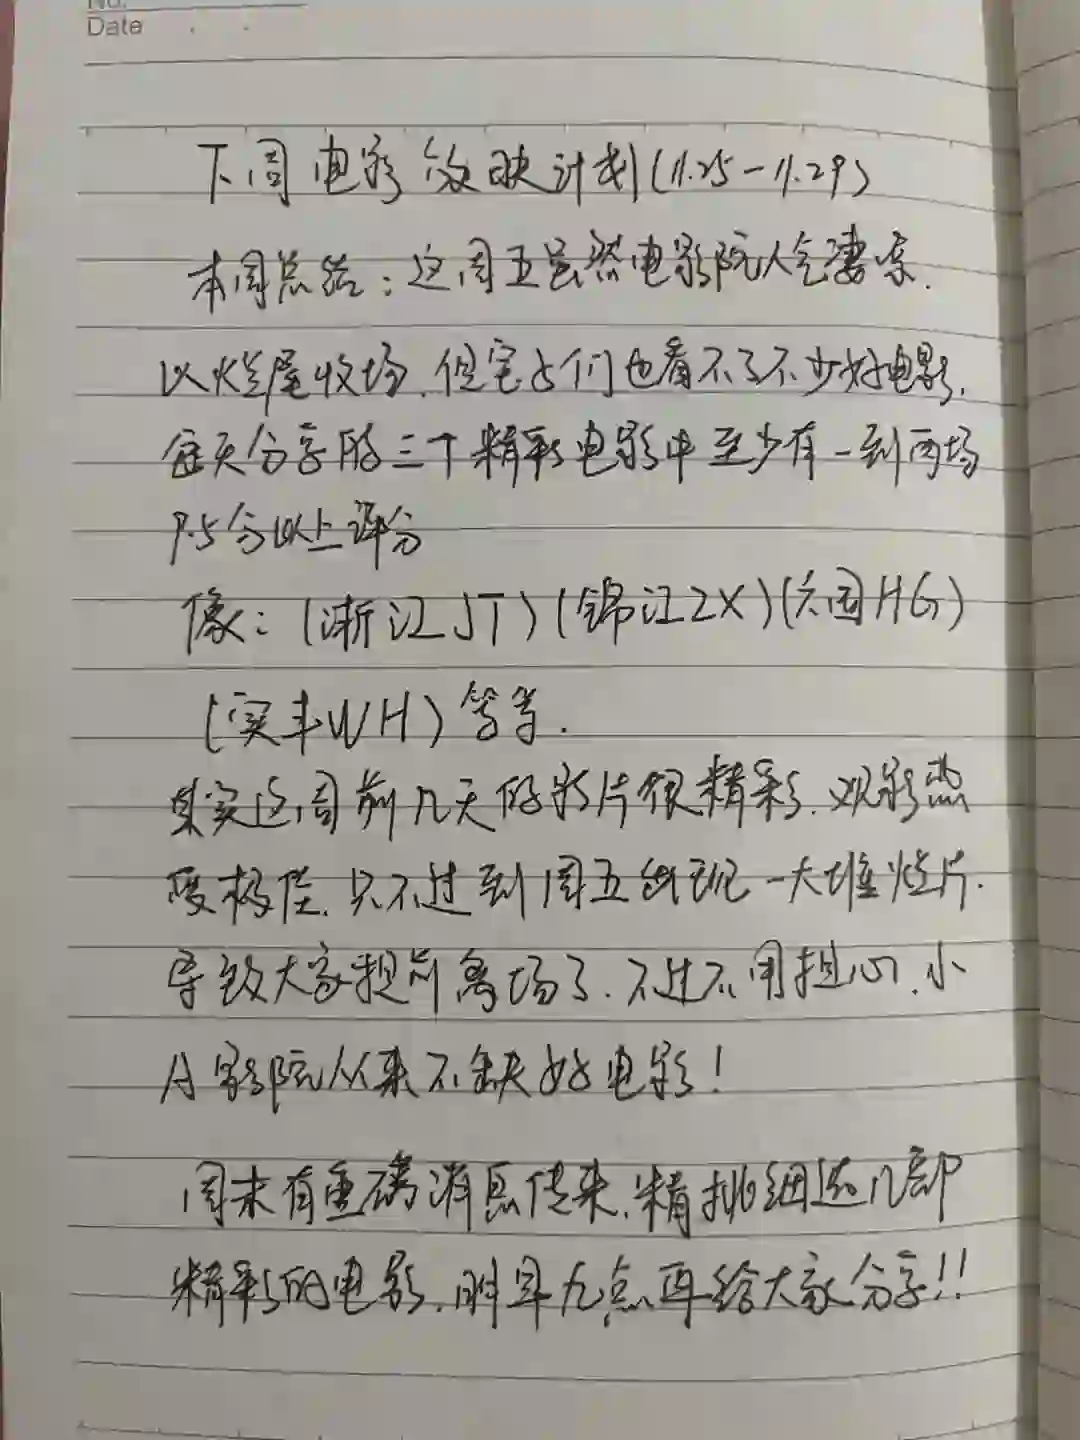 No.
Date
下周电影放映计划(11.25-11.29)
本周总结：这周五虽然电影院人气凄凉.
以烂尾收场.但宅友们也看不了不少好电影.
每天分享的三个精彩电影中至少有一到两场
9.5分以上评分
像：(浙江JT)(锦江ZX)(六国HG)
(实丰WH)等等.
其实这周前几天的影片很精彩.观影热
度极佳.只不过到周五出现一大堆烂片.
导致大家提前离场了.不过不用担心.小
A影院从来不缺好电影！
周末有重磅消息传来.精挑细选几部
精彩的电影.明早九点再给大家分享!!